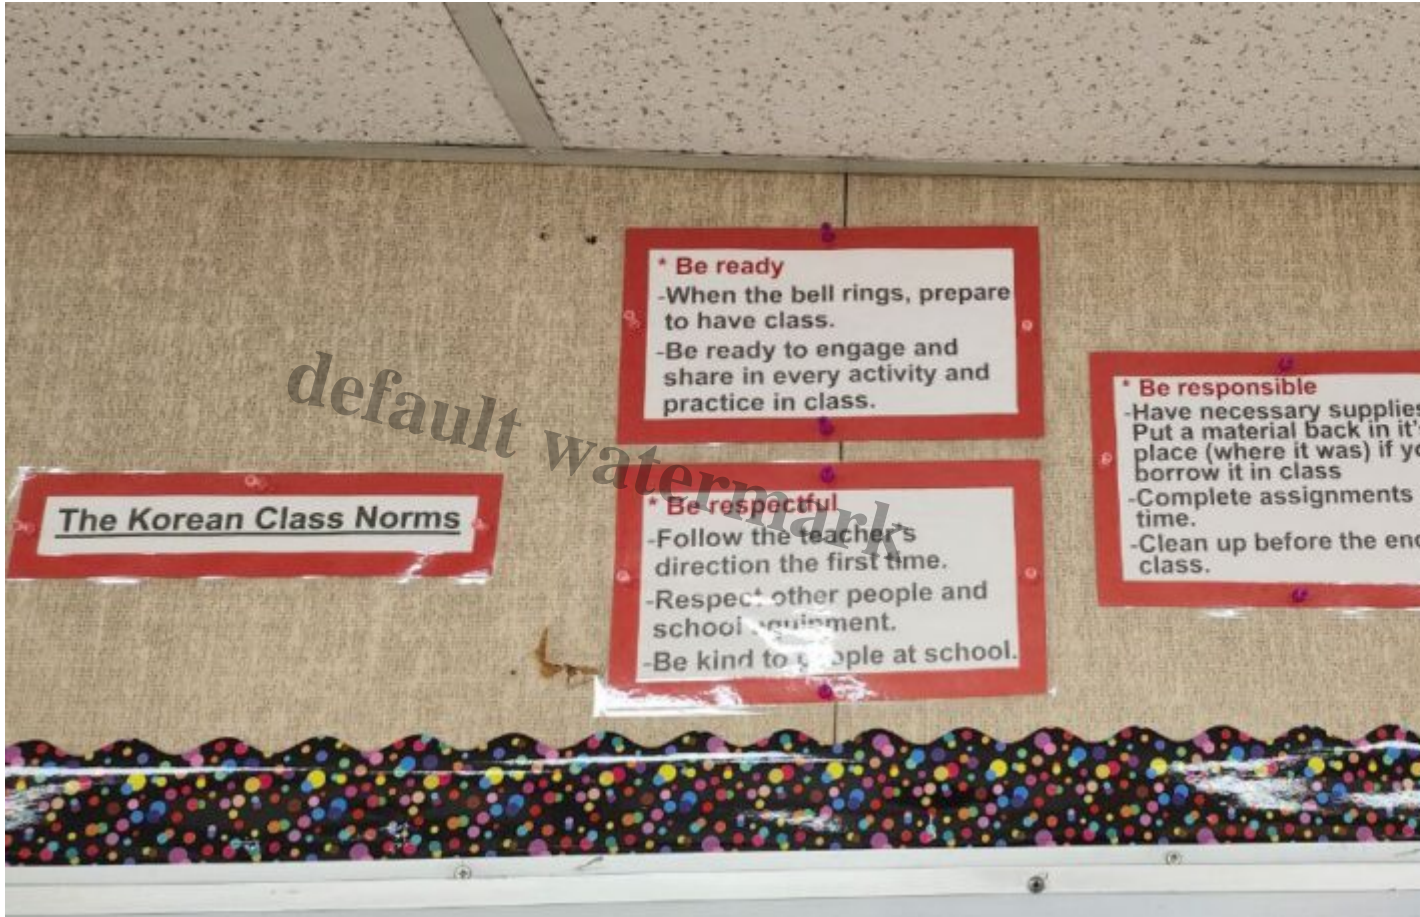 The Korean Class Norms
* Be ready
-When the bell rings, prepare
to have class.
-Be ready to engage and
share in every activity and
practice in class.
* Be respectful
-Follow the teacher's
direction the first time.
-Respect other people and
school equipment.
-Be kind to people at school.
* Be responsible
-Have necessary supplies
Put a material back in it's
place (where it was) if
borrow it in class
-Complete assignments
time.
-Clean up before the
class.
default watermark